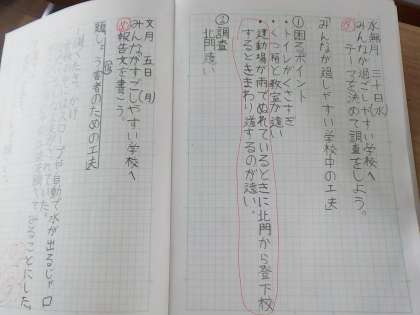 水無月 三十日(水)
みんなが過ごしやすい学校へ
め テーマを決めて調査をしよう。
「みんなが過しやすい学校中の工夫」
①困るポイント
・トイレがくさすぎ
・くつ箱と教室が遠い
・運動場が雨でぬれているときに北門から登下校
するときまわり道するのが遠い。
②調査
北門遠い
文月 五日(月)
みんながすごしやすい学校へ
め 報告文を書こう。
題
害者のための工夫
スロープや自動で水が出るじゃ口
ることにした。